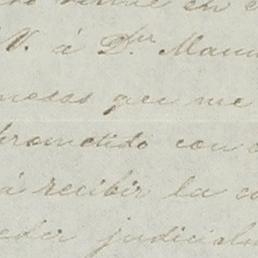 en
V. á D.ⁿ Manu
mesas que me
prometido con
á recibir la co
eder judicialm